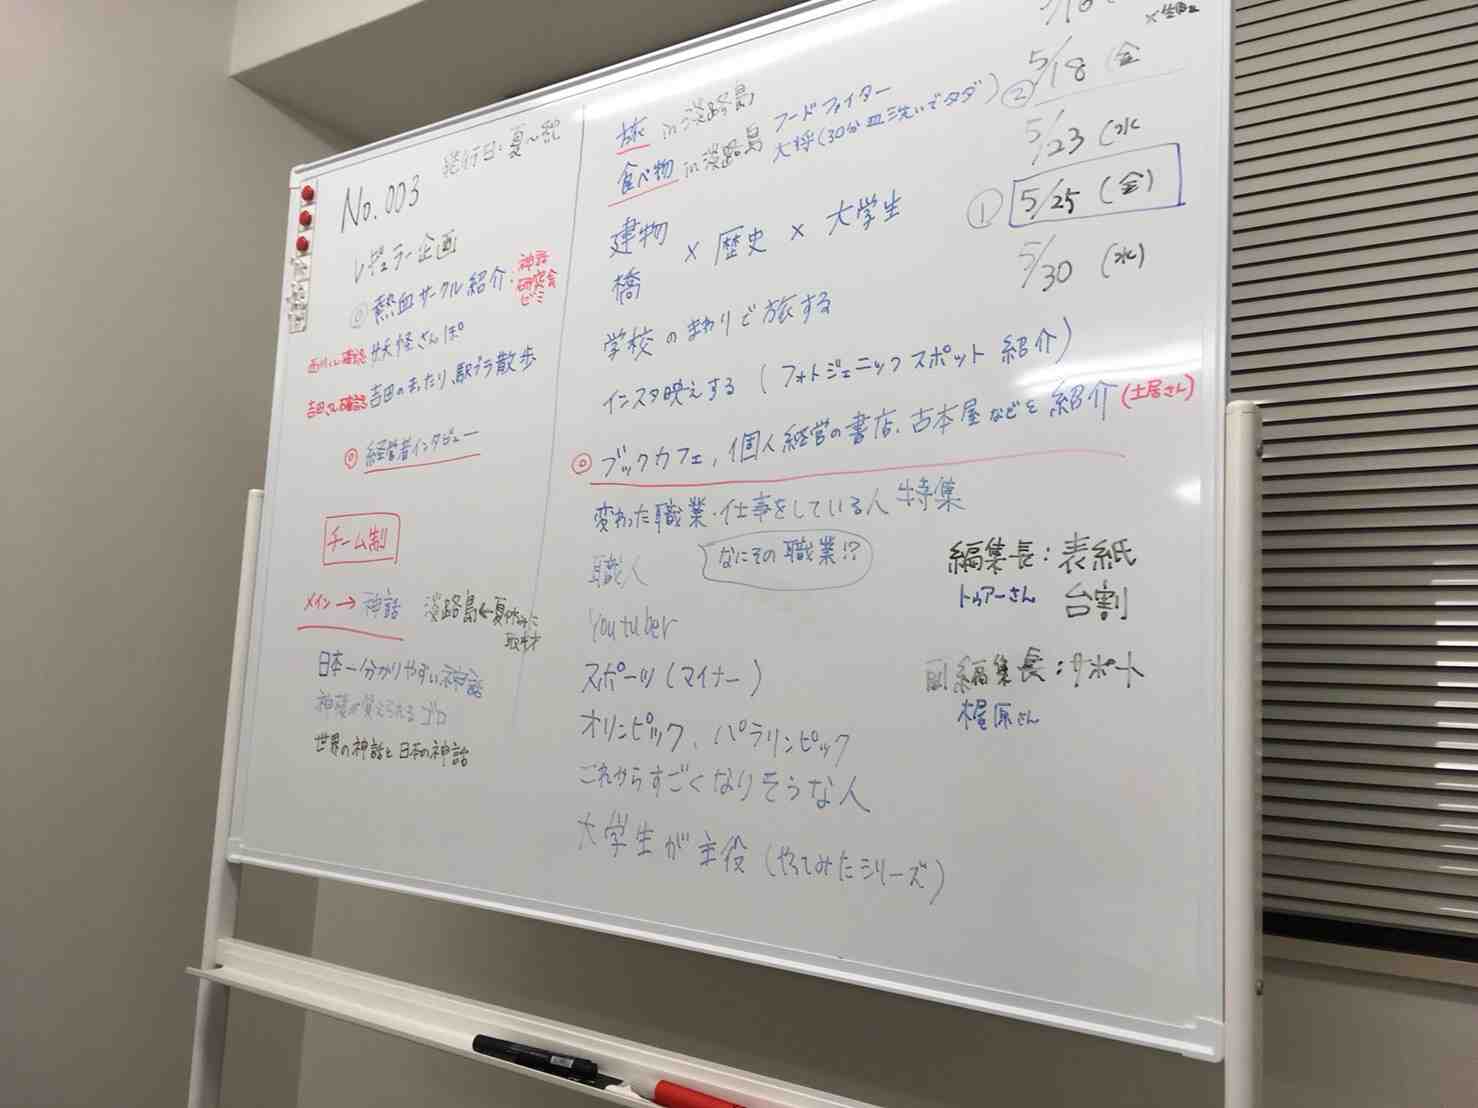 発行日:夏〜秋
No.003
レギュラー企画
◎ 熱血サークル紹介・神話研究会ゼミ
妖怪さんぽ
吉田さん確認 吉田のまったり、駅ブラ散歩
◎ 経営者インタビュー
チーム割
メイン→神話 淡路島←夏休みに取材
日本一分かりやすい神話
神様が覚えられるゴロ
世界の神話と日本の神話
旅 in 淡路島
食べ物 in 淡路島 フードファイター
大将(30分皿洗いでタダ)
建物 × 歴史 × 大学生
橋
学校のまわりで旅する
インスタ映えする(フォトジェニックスポット 紹介)
◎ ブックカフェ,個人経営の書店、古本屋などを紹介(土居さん)
変わった職業・仕事をしている人 特集
職人 なにその職業!?
Youtuber
スポーツ(マイナー)
オリンピック、パラリンピック
これからすごくなりそうな人
大学生が主役(やってみたシリーズ)
② 5/18(金
5/23(水
① 5/25(金)
5/30(水)
編集長:表紙
トゥアーさん 台割
副編集長:サポート
梶原さん